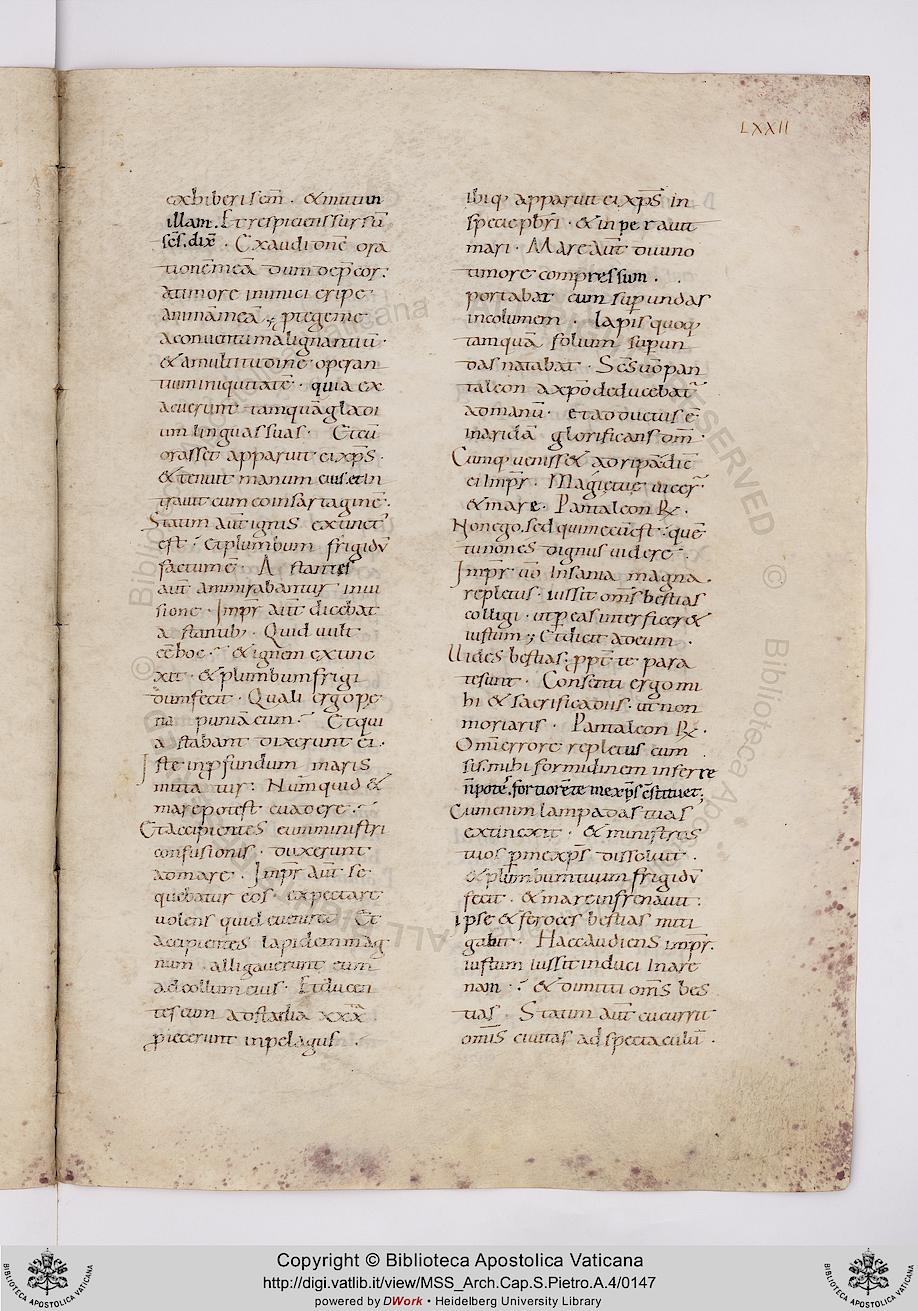 LXXII
exhiberi scm̄ · & mitti in
illam. Et respiciens sursū
scs̄. dix̄ · Exaudi dn̄e ora
tionē meā dum dep̄cor:
a timore inimici eripe
animā meā; p̱tege me
a conventu malignantiū ·
& a multitudine operan
tium iniquitatē · quia ex
acuerunt tamquā gladi
um linguas suas · Et cū
orasset apparuit ei xp̄s ·
& tenuit manum eius. et in
travit cum eo in sartagine ·
Statim aut̄ ignis extinct̄
est · et plumbum frigidū
factum ē · Astantes
aut̄ ammirabantur in vi
sione · Imp̄r aut̄ dicebat
astantib; · Quid vult
eē hoc · & ignem extinc
xit · & plumbum frigi
dum fecit · Quali ergo pe
na puniā eum · Et qui
astabant dixerunt ei ·
Iste in p̱fundum maris
mittatur · Numquid &
mare potest evadere ·
Et accipientes eum ministri
confusionis · duxerunt
ad mare · Imp̄r aut̄ se
quebatur eos · expectare
volens quid eveniret · Et
accipientes lapidem mag
num · alligaverunt eum
ad collum eius · Et ducen
tes eum ad stadia xxx
p̱iecerunt in pelagus ·
ibiq; apparuit ei xp̄s in
specie p̄bri · & inperavit
mari · Mare aut̄ divino
timore compressum ·
portabat eum sup̱ undas
incolumem · lapis quoq;
tamquā folium sup̱ un
das natabat · Scs̄ vō pan
taleon a xp̄o deducebat̄
ad manū · et adductus ē
in aridā glorificans dm̄ ·
Cumq; venisset ad ripā dic̄
ei Imp̄r · Magi&ue vicer̄
& mare · Pantaleon R̄ ·
Non ego. sed qui mecū est · quē
tu non es dignus videre ·
Imp̄r vō insania magna
repletus · iussit om̄s bestias
colligi · ut p̱ eas interficer&
iustum; Et dicit ad eum ·
Vides bestias · pp̄t te para
te sunt · Consenti ergo mi
hi & sacrifica diis · ut non
moriaris · Pantaleon R̄ ·
Omī errore repletus cum
sis. mihi formidinem inferre
n̄ potes̄. fortiorē te me xp̄s c̄stituet;
Cum enim lampadas tuas
extinxit · & ministros
tuos p̱ me xp̄s dissolvit ·
& plumbum tuum frigidū
fecit · & mare infrenavit ·
ipse & feroces bestias miti
gabit · Haec audiens imp̄r.
iustum iussit induci in are
nam · & dimitti om̄s bes
tias · Statim aut̄ cucurrit
om̄is civitas ad spectaculū ·
Copyright © Biblioteca Apostolica Vaticana
http://digi.vatlib.it/view/MSS_Arch.Cap.S.Pietro.A.4/0147
powered by DWork • Heidelberg University Library